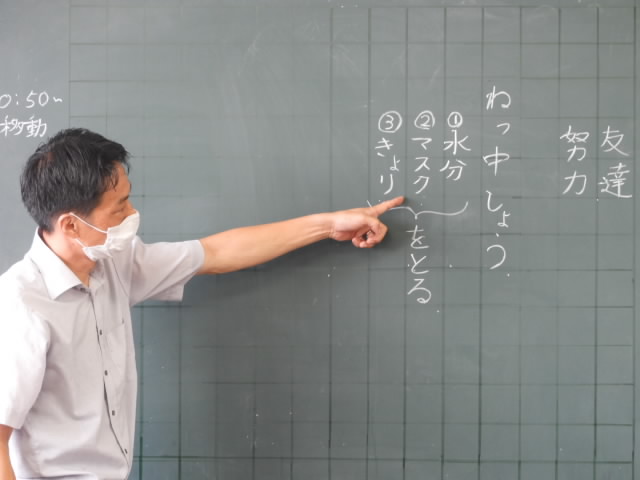 友達
努力
ねっ中しょう
①水分
②マスク
③きょり
をとる
0:50~
移動